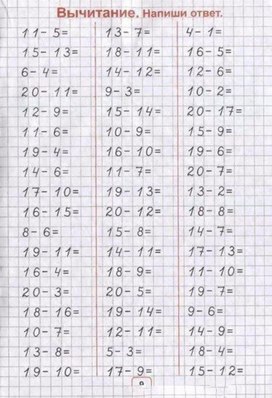 Вычитание. Напиши ответ.
11-5= 13-7= 4-1=
15-13= 18-11= 16-5=
6-4= 14-12= 12-6=
20-11= 9-3= 10-2=
12-9= 15-14= 20-17=
11-6= 10-9= 15-9=
19-4= 16-10= 19-6=
14-6= 11-7= 20-7=
17-10= 19-13= 13-2=
16-15= 20-12= 18-8=
8-6= 15-8= 14-7=
19-11= 14-11= 17-13=
16-4= 18-9= 11-10=
20-3= 20-5= 19-7=
18-16= 19-14= 9-6=
10-7= 12-11= 14-9=
13-8= 5-3= 18-4=
19-10= 17-9= 15-12=
9